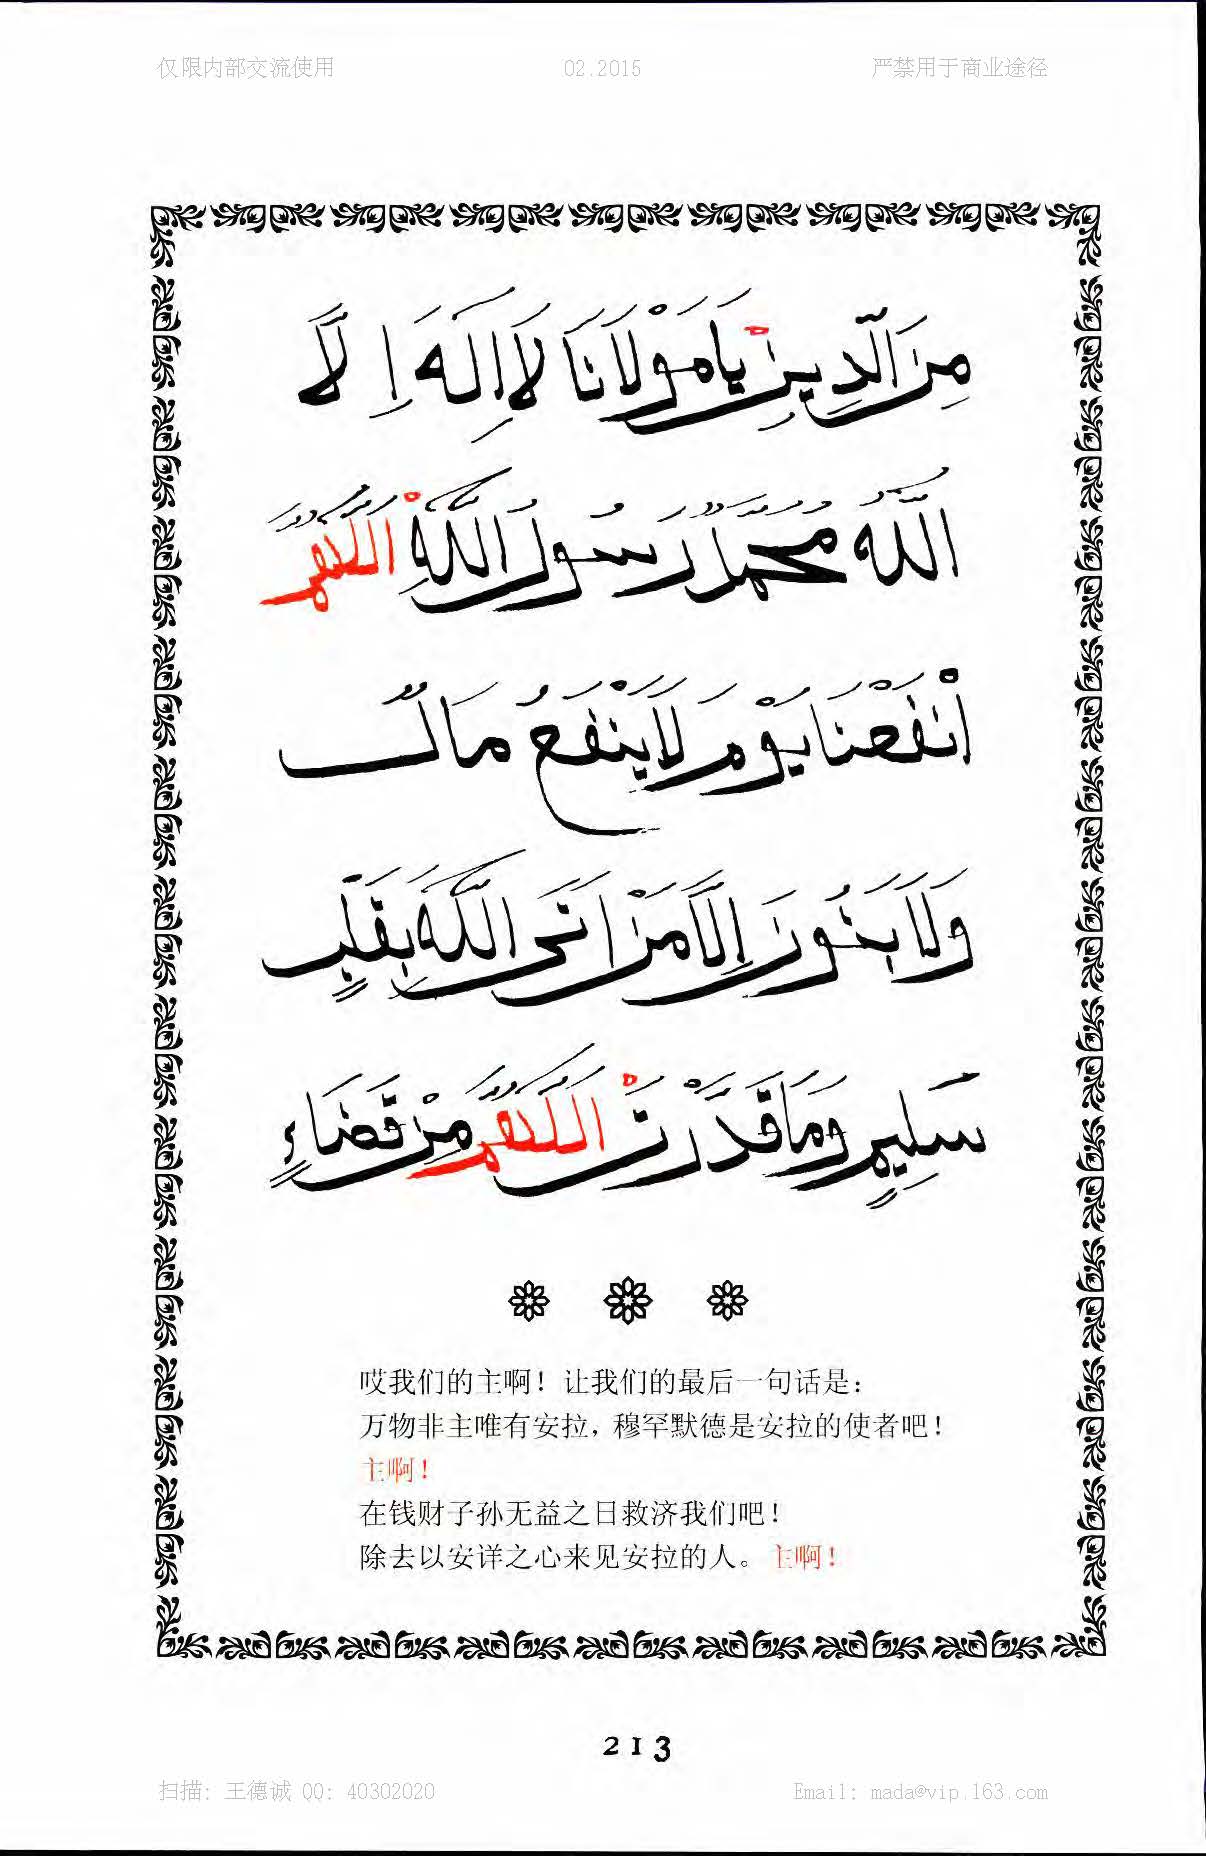 仅限内部交流使用 02.2015 严禁用于商业途径
مِنَ الدِّينِ يَا مَوْلَانَا لَا إِلَهَ إِلَّا
اللَّهُ مُحَمَّدٌ رَسُولُ اللَّهِ اَللَّهُمَّ
انْفَعْنَا يَوْمَ لَا يَنْفَعُ مَالٌ
وَلَا بَنُونَ إِلَّا مَنْ أَتَى اللَّهَ بِقَلْبٍ
سَلِيمٍ وَمَا قَدَّرْتَ اَللَّهُمَّ مِنْ قَضَاءٍ
哎我们的主啊！让我们的最后一句话是：
万物非主唯有安拉，穆罕默德是安拉的使者吧！
主啊！
在钱财子孙无益之日救济我们吧！
除去以安详之心来见安拉的人。主啊！
213
扫描：王德诚 QQ：40302020 Email: mada@vip.163.com